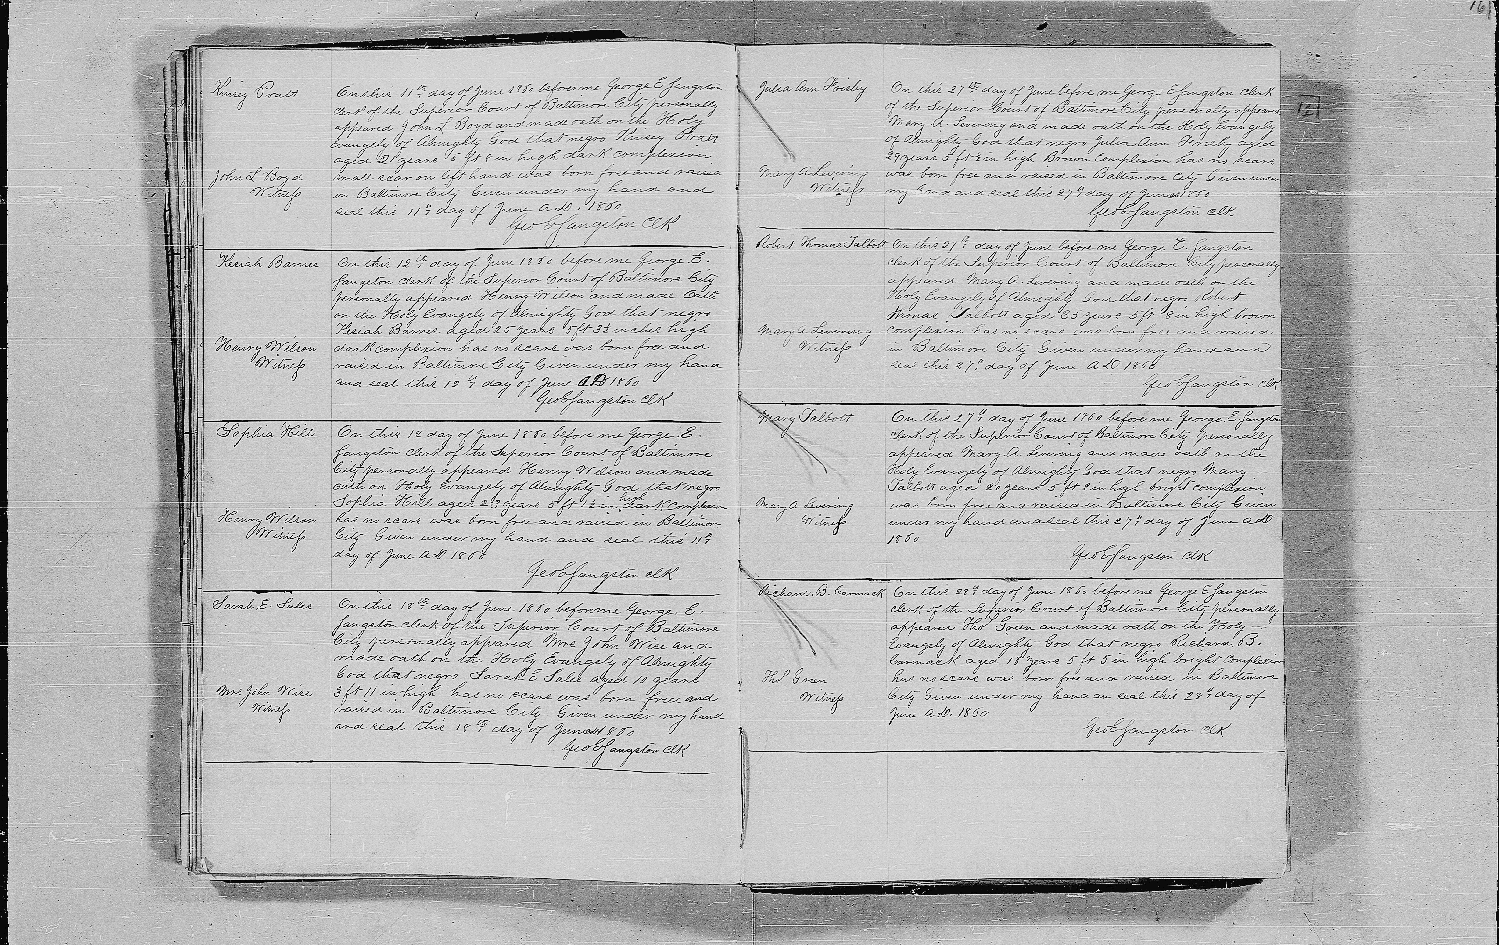 Kinsey Pratt
John L Boyd
Witness
On this 11th day of June 1860 before me George E Sangston
clerk of the Superior Court of Baltimore City personally
appeared John L Boyd and made oath on the Holy
Evangely of Almighty God that negro Kinsey Pratt
aged 21 years 5 ft 8 in high dark complexion
small scar on left hand was born free and raised
in Baltimore City Given under my hand and
seal this 11th day of June A.D. 1860
Geo E Sangston Clk
Kesiah Barnes
Henry Wilson
Witness
On this 12th day of June 1860 before me George E.
Sangston clerk of the Superior Court of Baltimore City
personally appeared Henry Wilson and made oath
on the Holy Evangely of Almighty God that negro
Kesiah Barnes aged 25 years 5 ft 3½ inches high
dark complexion has no scars was born free and
raised in Baltimore City Given under my hand
and seal this 12th day of June AD 1860
Geo E Sangston Clk
Sophia Hill
Henry Wilson
Witness
On this 12 day of June 1860 before me George E.
Sangston clerk of the Superior Court of Baltimore
City personally appeared Henry Wilson and made
oath on Holy Evangely of Almighty God that negro
Sophia Hill aged years 5 ft in high dark complexion
has no scars was born free and raised in Baltimore
City Given under my hand and seal this
day of June A.D 1860
Geo E Sangston clk
Sarah E. Sales
Mrs John Wise
Witness
On this 18th day of June 1860 before me George E.
Sangston clerk of the Superior Court of Baltimore
City personally appeared Mrs John Wise and
made oath on the Holy Evangely of Almighty
God that negro Sarah E Sales aged 10 years
3 ft 11 in high has no scars was born free and
raised in Baltimore City Given under my hand
and seal this 18th day of June 1860
Geo E Sangston clk
Julia Ann
Mary A Levering
Witness
On this 27th day of June before me George E Sangston clerk
of the Superior Court of Baltimore City personally appeared
Mary A. Levering and made oath on the Holy Evangely
of Almighty God that negro Julia Ann aged
29 years 5 ft 2 in high Brown Complexion has no scars
was born free and raised in Baltimore City Given under
my hand and seal this 27th day of June 1860
Geo E Sangston clk.
Robert Thomas Talbott
Mary A Levering
Witness
On this 27th day of June before me George E. Sangston
clerk of the Superior Court of Baltimore City personally
appeared Mary A. Levering and made oath on the
Holy Evangely of Almighty God that negro Robert
Thomas Talbott aged 23 years 5 ft 8 in high brown
complexion has no scars was born free and raised
in Baltimore City Given under my hand and
seal this 27th day of June A.D 1860
Geo E Sangston clk
Mary Talbott
Mary A Levering
Witness
On this 27th day of June 1860 before me George E Sangston
clerk of the Superior Court of Baltimore City personally
appeared Mary A. Levering and made oath on the
Holy Evangely of Almighty God that negro Mary
Talbott aged 20 years 5 ft 2 in high bright complexion
was born free and raised in Baltimore City Given
under my hand and seal this 27th day of June A.D
1860
Geo E Sangston clk
Richard B. Cormack
Thos Green
Witness
On this 28th day of June 1860 before me George E Sangston
clerk of the Superior Court of Baltimore City personally
appeared Thos Green and made oath on the Holy
Evangely of Almighty God that negro Richard B.
Cormack aged 18 years 5 ft 5 in high bright complexion
has no scars was born free and raised in Baltimore
City Given under my hand and seal this 28th day of
June A.D. 1860
Geo E Sangston clk